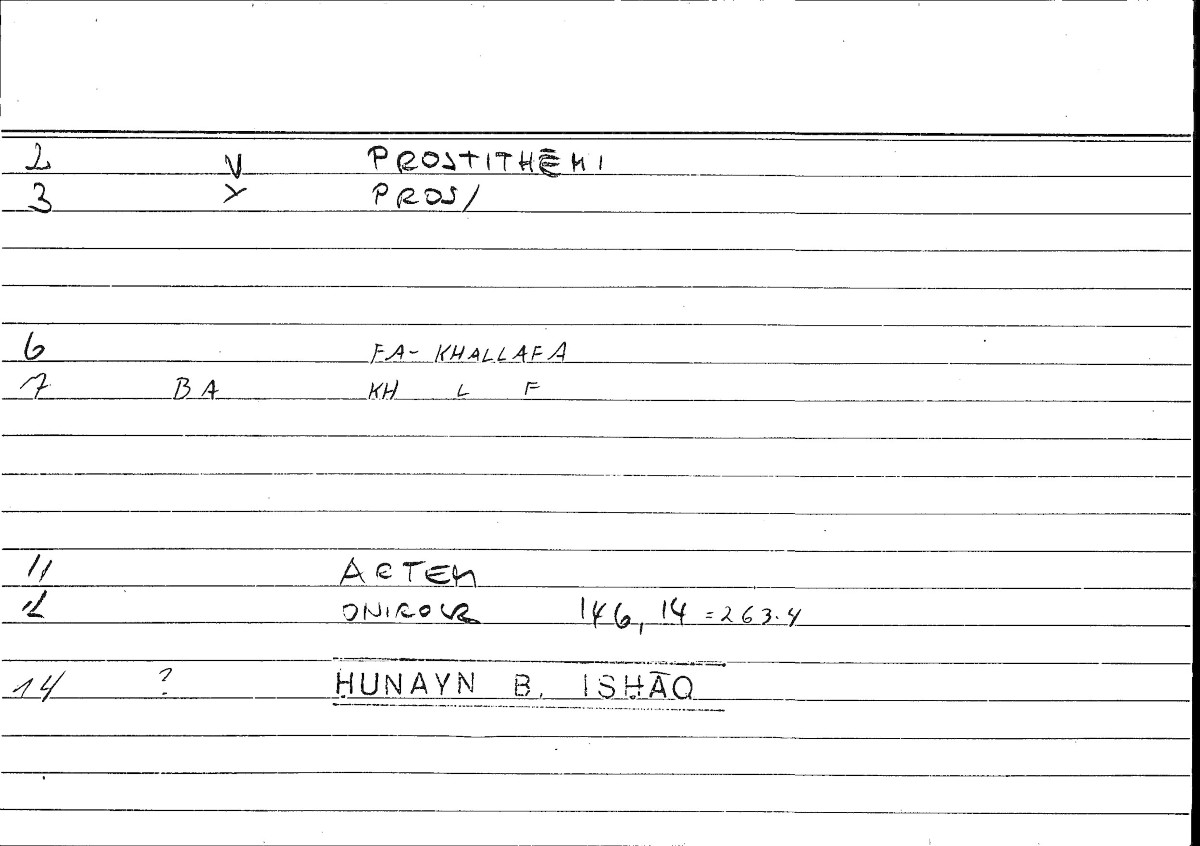 2 V PROSTITHĒMI
3 Y PROS/
6 FA-KHALLAFA
7 BA KH L F
11 ARTEM
12 ONIROCR 146,14 =263.4
14 ? ḤUNAYN B. ISḤĀQ